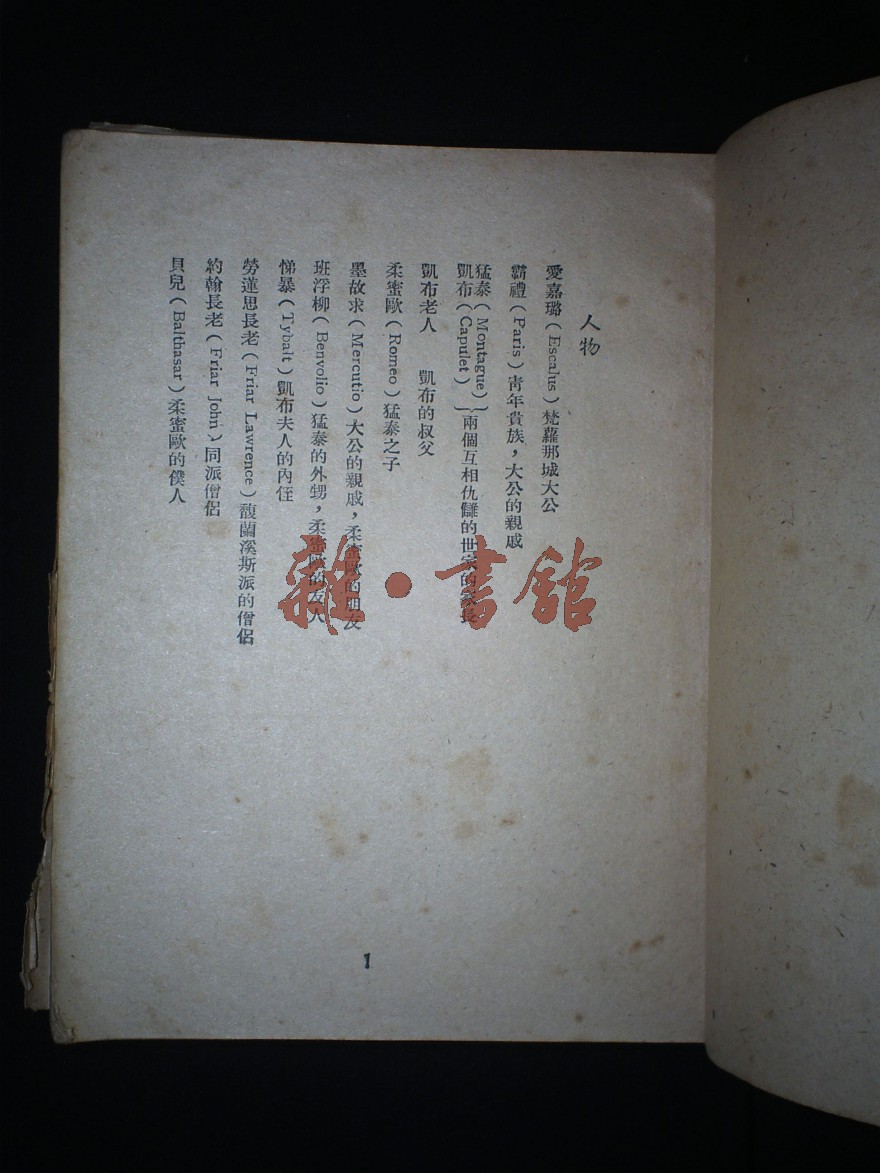 人物
愛嘉璐（Escalus）梵蘿那城大公
霸禮（Paris）靑年貴族，大公的親戚
猛泰（Montague）
凱布（Capulet）}兩個互相仇讎的世家的家長
凱布老人　凱布的叔父
柔蜜歐（Romeo）猛泰之子
墨故求（Mercutio）大公的親戚，柔蜜歐的朋友
班浮柳（Benvolio）猛泰的外甥，柔蜜歐的友人
悌暴（Tybalt）凱布夫人的內侄
勞蓮思長老（Friar Lawrence）馥蘭溪斯派的僧侶
約翰長老（Friar John）同派僧侶
貝兒（Balthasar）柔蜜歐的僕人
1
雜·書館